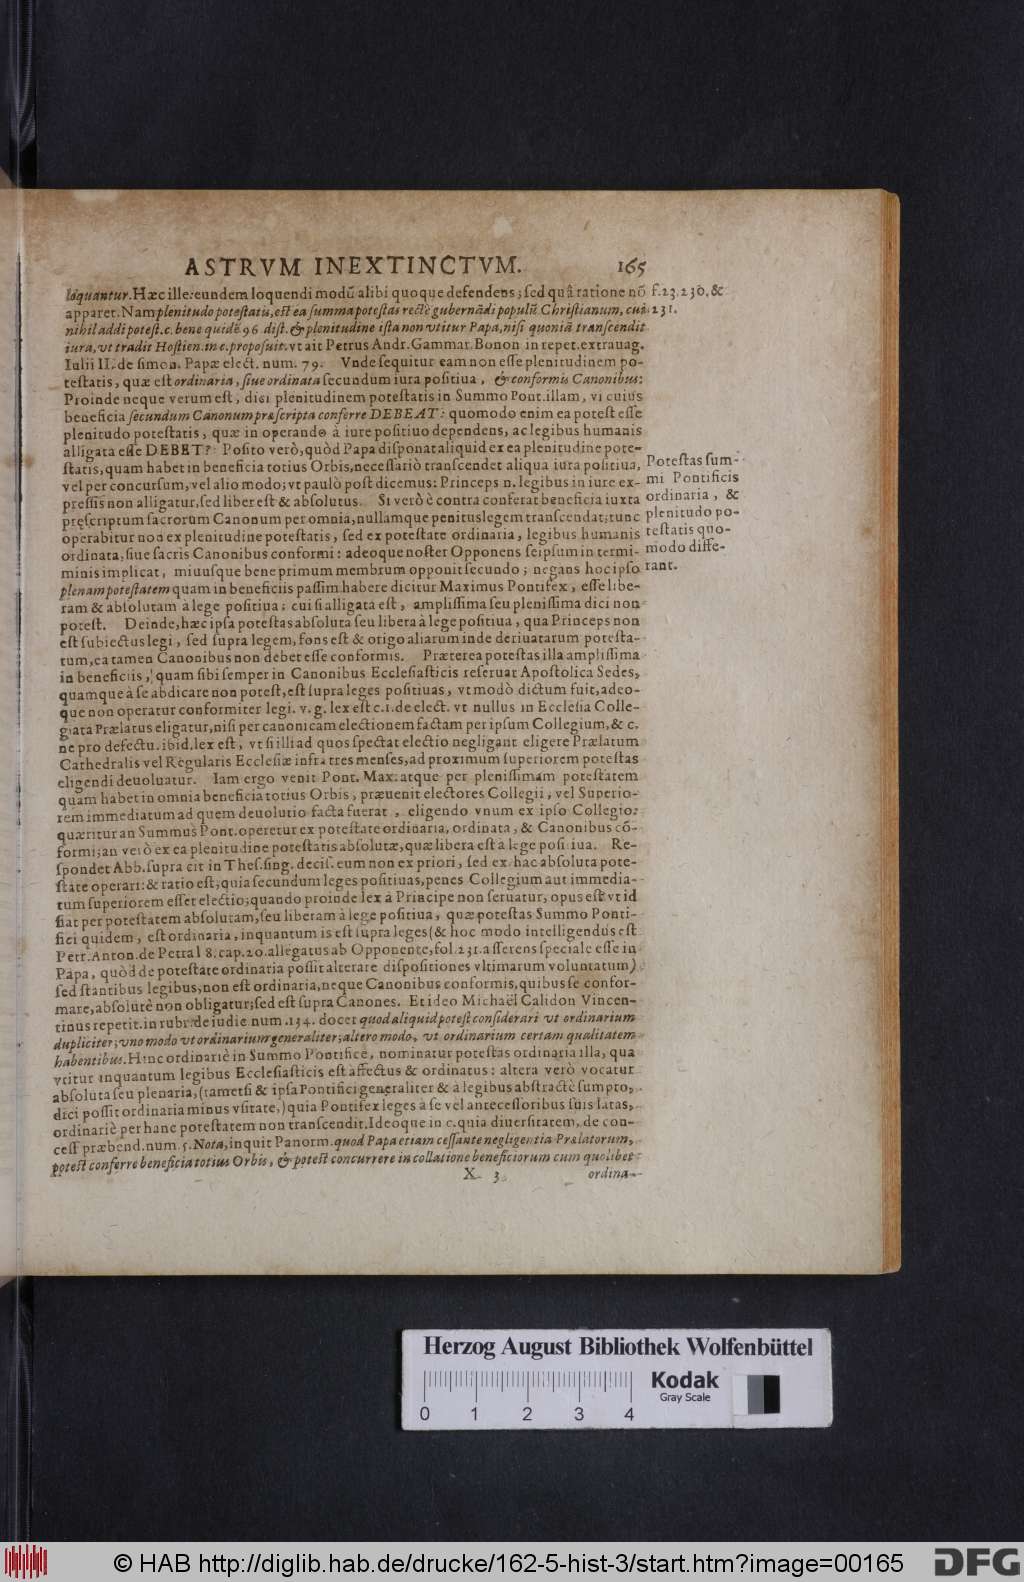 ASTRVM INEXTINCTVM. 165
loquantur. Hæc ille: eundem loquendi modũ alibi quoque defendens; ſed quâ ratione nõ f. 23. 230. &
apparet. Nam plenitudo poteſtatis, eſt ea ſumma poteſtas rectè gubernãdi populũ Chriſtianum, cui 231.
nihil addi poteſt. c. bene quidẽ 96 diſt. & plenitudine iſta non vtitur Papa, niſi quoniã tranſcendit
iura, vt tradit Hoſtien. in c. propoſuit. vt ait Petrus Andr. Gammar. Bonon in repet. extrauag.
Iulii II. de ſimon. Papæ elect. num. 79. Vnde ſequitur eam non eſſe plenitudinem po-
teſtatis, quæ eſt ordinaria, ſiue ordinata ſecundum iura poſitiua, & conformis Canonibus:
Proinde neque verum eſt, dici plenitudinem poteſtatis in Summo Pont. illam, vi cuius
beneficia ſecundum Canonum præſcripta conferre DEBEAT: quomodo enim ea poteſt eſſe
plenitudo poteſtatis, quæ in operando à iure poſitiuo dependens, ac legibus humanis
alligata eſſe DEBET? Poſito verò, quòd Papa diſponat aliquid ex ea plenitudine pote-
ſtatis, quam habet in beneficia totius Orbis, neceſſariò tranſcendet aliqua iura poſitiua,
vel per concurſum, vel alio modo; vt paulò poſt dicemus: Princeps n. legibus in iure ex-
preſſis non alligatur, ſed liber eſt & abſolutus. Si verò è contra conferat beneficia iuxta
pręſcriptum ſacrorum Canonum per omnia, nullamque penitus legem tranſcendat; tunc
operabitur non ex plenitudine poteſtatis, ſed ex poteſtate ordinaria, legibus humanis
ordinata, ſiue ſacris Canonibus conformi: adeoque noſter Opponens ſeipſum in termi-
minis implicat, miuuſque bene primum membrum opponit ſecundo; negans hoc ipſo
plenam poteſtatem quam in beneficiis paſſim habere dicitur Maximus Pontifex, eſſe libe-
ram & abſolutam à lege poſitiua; cui ſi alligata eſt, ampliſſima ſeu pleniſſima dici non
poteſt. Deinde, hæc ipſa poteſtas abſoluta ſeu libera à lege poſitiua, qua Princeps non
eſt ſubiectus legi, ſed ſupra legem, fons eſt & origo aliarum inde deriuatarum poteſta-
tum, ea tamen Canonibus non debet eſſe conformis. Præterea poteſtas illa ampliſſima
in beneficiis, quam ſibi ſemper in Canonibus Eccleſiaſticis reſeruat Apoſtolica Sedes,
quamque à ſe abdicare non poteſt, eſt ſupra leges poſitiuas, vt modò dictum fuit, adeo-
que non operatur conformiter legi. v. g. lex eſt c. 1. de elect. vt nullus in Eccleſia Colle-
giata Prælatus eligatur, niſi per canonicam electionem factam per ipſum Collegium, & c.
ne pro defectu. ibid. lex eſt, vt ſi illi ad quos ſpectat electio negligant eligere Prælatum
Cathedralis vel Regularis Eccleſiæ infra tres menſes, ad proximum ſuperiorem poteſtas
eligendi deuoluatur. Iam ergo venit Pont. Max: atque per pleniſſimam poteſtatem
quam habet in omnia beneficia totius Orbis, præuenit electores Collegii, vel Superio-
rem immediatum ad quem deuolutio facta fuerat, eligendo vnum ex ipſo Collegio:
quæritur an Summus Pont. operetur ex poteſtate ordinaria, ordinata, & Canonibus cõ-
formi; an verò ex ea plenitudine poteſtatis abſolutæ, quæ libera eſt à lege poſitiua. Re-
ſpondet Abb. ſupra cit in Theſ. ſing. deciſ. eum non ex priori, ſed ex hac abſoluta pote-
ſtate operari: & ratio eſt; quia ſecundum leges poſitiuas, penes Collegium aut immedia-
tum ſuperiorem eſſet electio; quando proinde lex à Principe non ſeruatur, opus eſt vt id
fiat per poteſtatem abſolutam, ſeu liberam à lege poſitiua, quæ poteſtas Summo Ponti-
fici quidem, eſt ordinaria, inquantum is eſt ſupra leges (& hoc modo intelligendus eſt
Petr. Anton. de Petra l 8. cap. 20. allegatus ab Opponente, fol. 231. aſſerens ſpeciale eſſe in
Papa, quòd de poteſtate ordinaria poſſit alterare diſpoſitiones vltimarum voluntatum)
ſed ſtantibus legibus, non eſt ordinaria, neque Canonibus conformis, quibus ſe confor-
mare, abſolutè non obligatur; ſed eſt ſupra Canones. Et ideo Michaël Calidon Vincen-
tinus repetit. in rubr. de iudic num. 134. docet quod aliquid poteſt conſiderari vt ordinarium
dupliciter; vno modo vt ordinarium generaliter; altero modo, vt ordinarium certam qualitatem
habentibus. Hinc ordinariè in Summo Pontifice, nominatur poteſtas ordinaria illa, qua
vtitur inquantum legibus Eccleſiaſticis eſt affectus & ordinatus: altera verò vocatur
abſoluta ſeu plenaria, (tametſi & ipſa Pontifici generaliter & à legibus abſtractè ſumpto,
dici poſſit ordinaria minus vſitate,) quia Pontifex leges à ſe vel anteceſſoribus ſuis latas,
ordinariè per hanc poteſtatem non tranſcendit. Ideoque in c. quia diuerſitatem, de con-
ceſſ præbend. num. 5. Nota, inquit Panorm. quod Papa etiam ceſſante negligentia Prælatorum,
poteſt conferre beneficia totius Orbis, & poteſt concurrere in collatione beneficiorum cum quolibet
X 3 ordina-
Poteſtas ſum-
mi Pontificis
ordinaria, &
plenitudo po-
teſtatis quo-
modo diffe-
rant.
Herzog August Bibliothek Wolfenbüttel
Kodak
Gray Scale
0 1 2 3 4
© HAB http://diglib.hab.de/drucke/162-5-hist-3/start.htm?image=00165
DFG